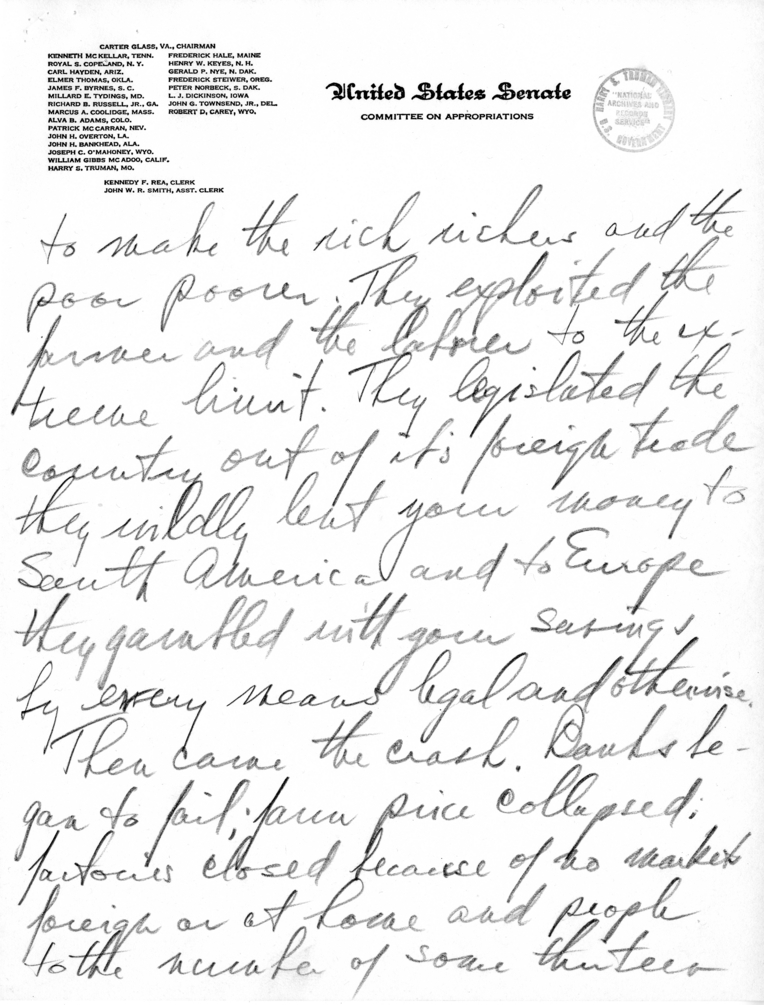 CARTER GLASS, VA., CHAIRMAN
KENNETH McKELLAR, TENN.
ROYAL S. COPELAND, N. Y.
CARL HAYDEN, ARIZ.
ELMER THOMAS, OKLA.
JAMES F. BYRNES, S. C.
MILLARD E. TYDINGS, MD.
RICHARD B. RUSSELL, JR., GA.
MARCUS A. COOLIDGE, MASS.
ALVA B. ADAMS, COLO.
PATRICK McCARRAN, NEV.
JOHN H. OVERTON, LA.
JOHN H. BANKHEAD, ALA.
JOSEPH C. O'MAHONEY, WYO.
WILLIAM GIBBS McADOO, CALIF.
HARRY S. TRUMAN, MO.
FREDERICK HALE, MAINE
HENRY W. KEYES, N. H.
GERALD P. NYE, N. DAK.
FREDERICK STEIWER, OREG.
PETER NORBECK, S. DAK.
L. J. DICKINSON, IOWA
JOHN G. TOWNSEND, JR., DEL.
ROBERT D. CAREY, WYO.
KENNEDY F. REA, CLERK
JOHN W. R. SMITH, ASST. CLERK
United States Senate
COMMITTEE ON APPROPRIATIONS
HARRY S. TRUMAN LIBRARY
"NATIONAL
ARCHIVES AND
RECORDS
SERVICE"
U.S. GOVERNMENT
to make the rich richer and the
poor poorer. They exploited the
farmer and the laborer to the ex-
treme limit. They legislated the
country out of it's foreign trade
they wildly lent your money to
South America and to Europe
they gambled with your savings
by every means legal and otherwise.
Then came the crash. Banks be-
gan to fail; farm price collapsed;
factories closed because of no market
foreign or at home and people
to the number of some thirteen